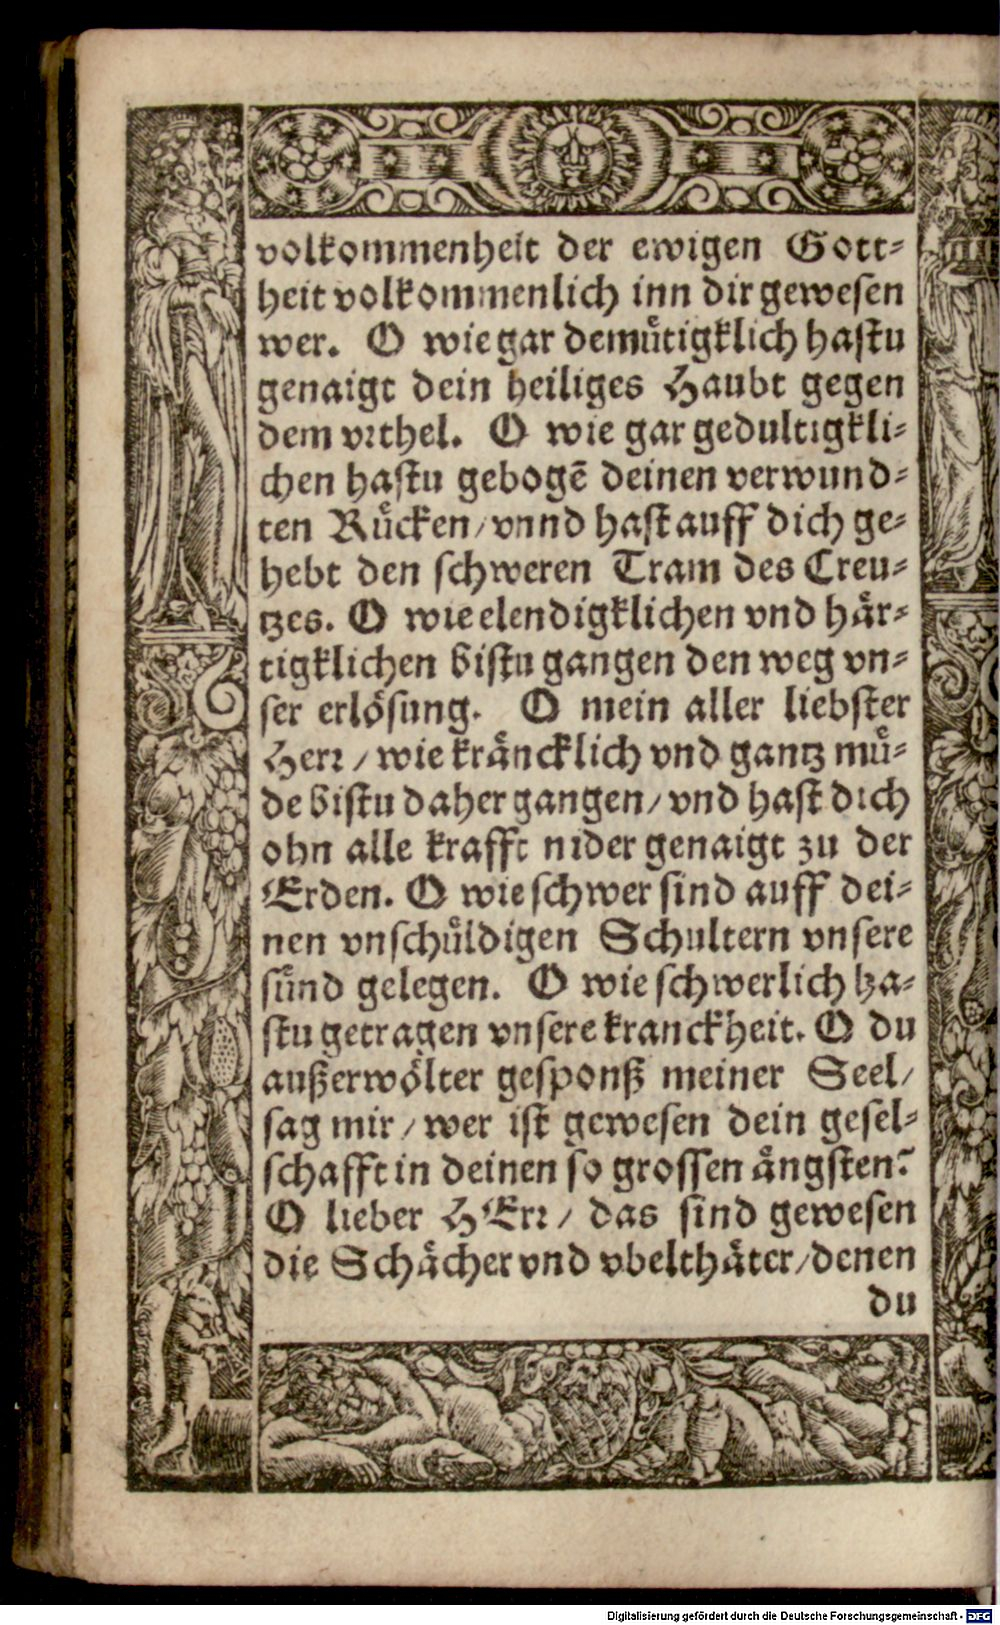 volkommenheit der ewigen Gott⸗
heit volkommenlich inn dir gewesen
wer. O wie gar demuͤtigklich hastu
genaigt dein heiliges Haubt gegen
dem vrthel. O wie gar gedultigkli⸗
chen hastu gebogē deinen verwund⸗
ten Ruͤcken/ vnnd hast auff dich ge⸗
hebt den schweren Tram des Creu⸗
tzes. O wie elendigklichen vnd haͤr⸗
tigklichen bistu gangen den weg vn⸗
ser erloͤsung. O mein aller liebster
Herr/ wie kraͤncklich vnd gantz muͤ⸗
de bistu daher gangen/ vnd hast dich
ohn alle krafft nider genaigt zu der
Erden. O wie schwer sind auff dei⸗
nen vnschuͤldigen Schultern vnsere
suͤnd gelegen. O wie schwerlich ha⸗
stu getragen vnsere kranckheit. O du
außerwoͤlter gesponß meiner Seel/
sag mir/ wer ist gewesen dein gesel⸗
schafft in deinen so grossen aͤngsten?
O lieber HErr/ das sind gewesen
die Schaͤcher vnd vbelthaͤter/ denen
du
Digitalisierung gefördert durch die Deutsche Forschungsgemeinschaft - DFG